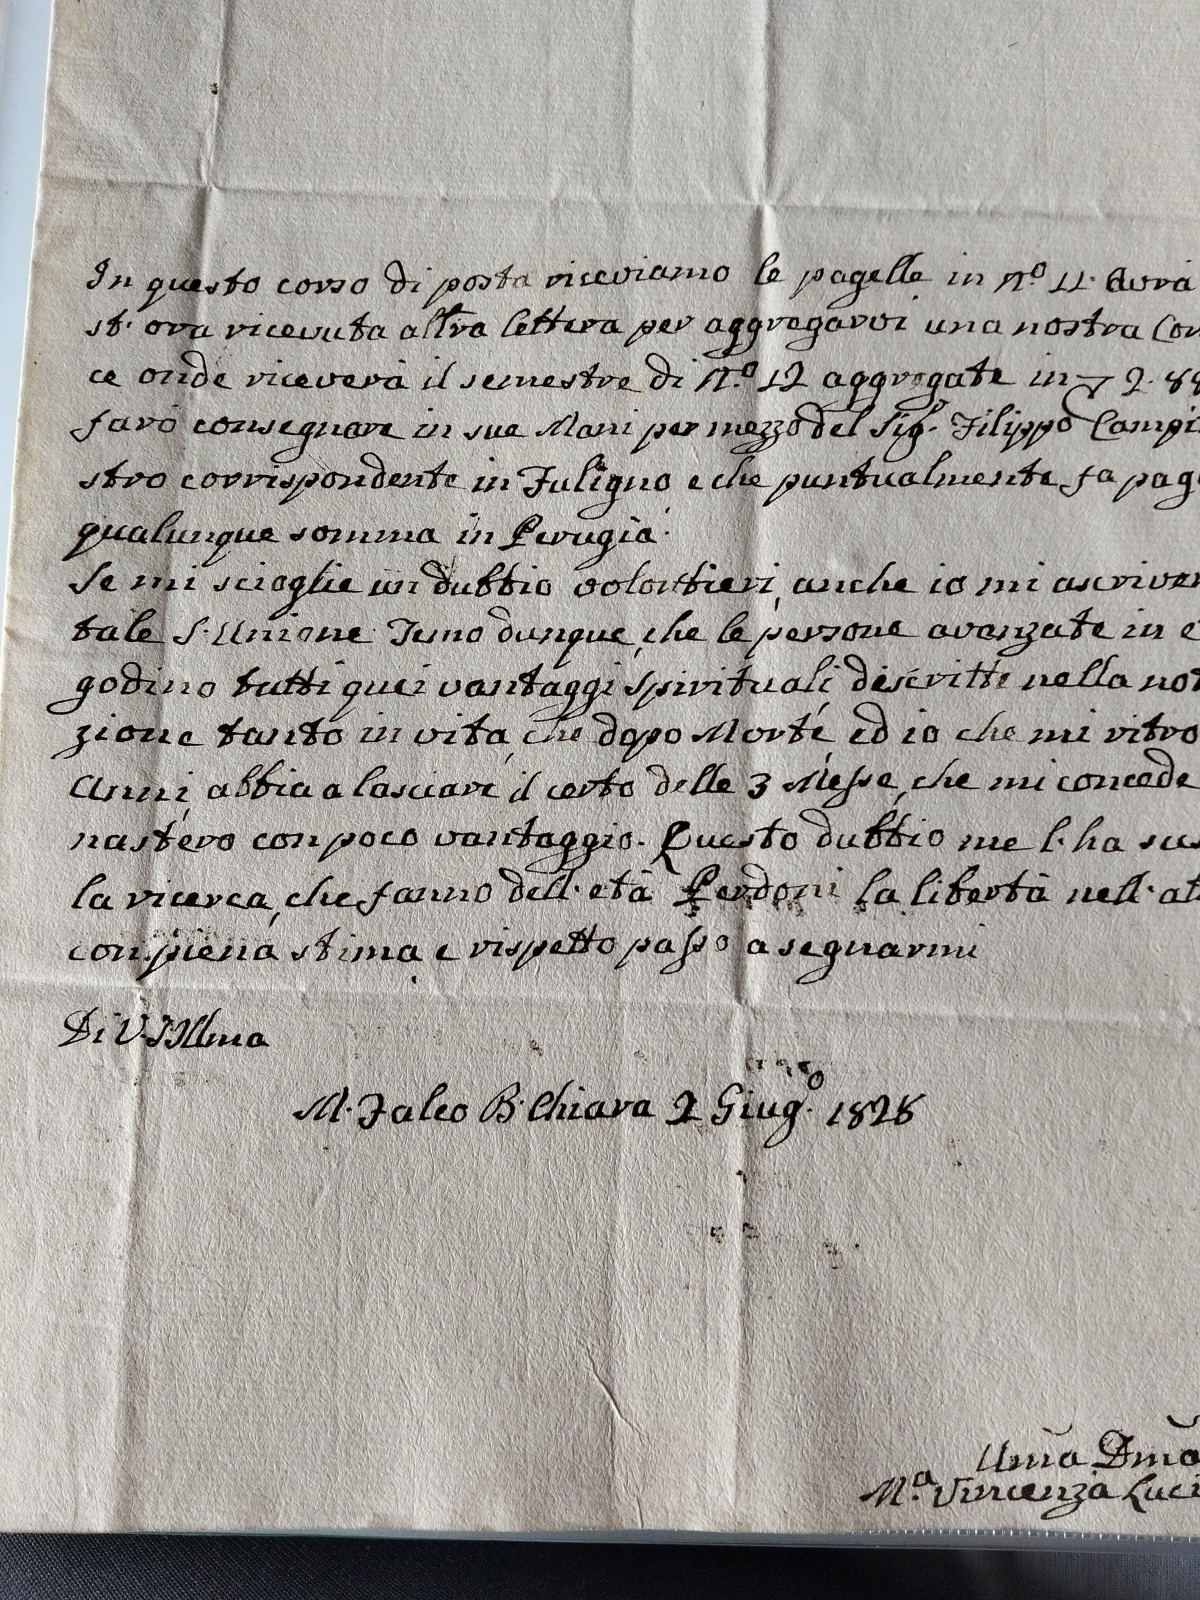 In questo corso di posta riceviamo le pagelle in N.º 11. Avrà
st. ora ricevuta altra lettera per aggregarvi una nostra Con
ce onde riceverà il semestre di N.º 12 aggregate in 2. 88
farò consegnare in sue Mani per mezzo del Sig.r Filippo Campi
stro corrispondente in Fuligno e che puntualmente fa pag
qualunque somma in Perugia.
Se mi scioglie un dubbio volontieri, anche io mi ascriver
tale S. Unione. Temo dunque, che le persone avanzate in e
godino tutti quei vantaggi spirituali descritti nella not
zione tanto in vita, che dopo Morte, ed io che mi ritro
Anni abbia a lasciare il certo delle 3 Messe, che mi concede
nastero con poco vantaggio. Questo dubbio me l'ha su
la ricerca, che fanno dell'età Perdoni la libertà nell'at
con piena stima e rispetto passo a segnarmi
Di V. S. Illma
M. Falco B. Chiara 2 Giug.º 1828
Uma Dma
M.a Vincenza Luci